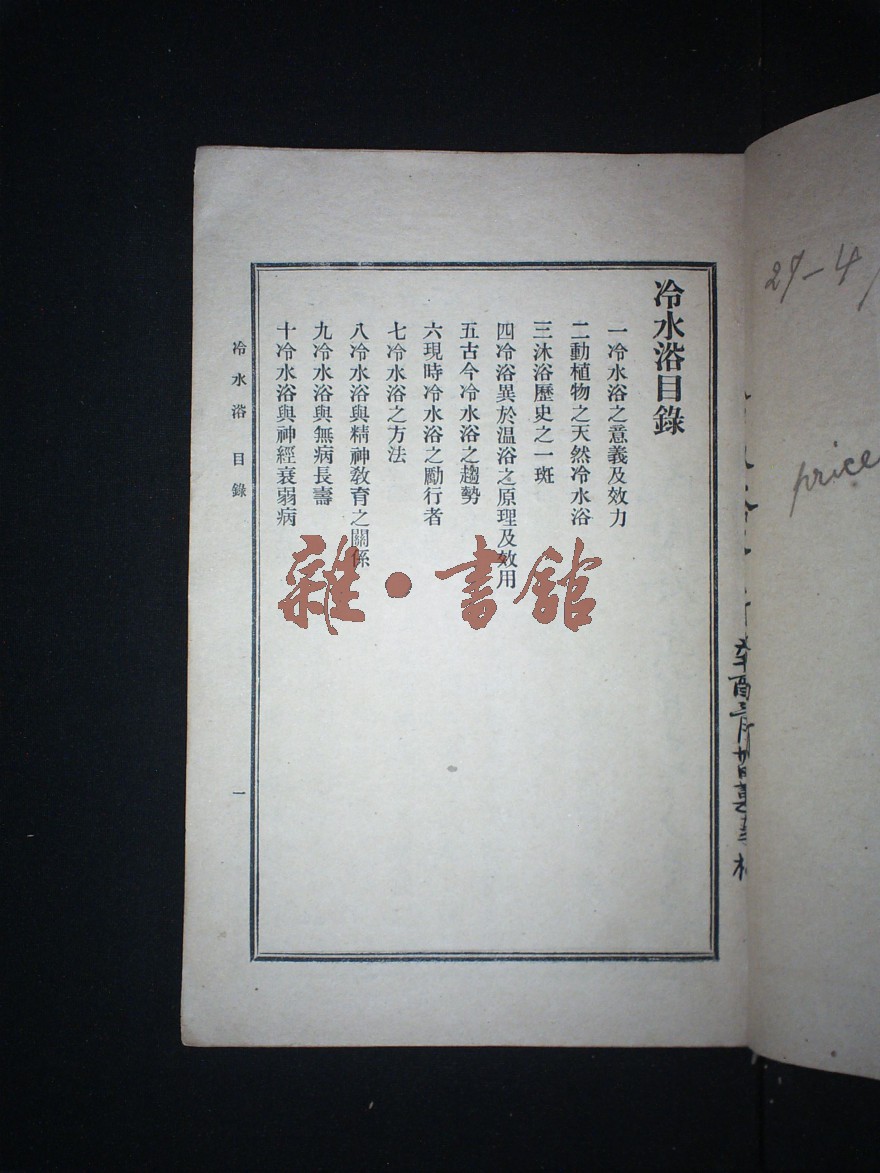 冷水浴目錄
一冷水浴之意義及效力
二動植物之天然冷水浴
三沐浴歷史之一斑
四冷浴異於温浴之原理及效用
五古今冷水浴之趨勢
六現時冷水浴之勵行者
七冷水浴之方法
八冷水浴與精神教育之關係
九冷水浴與無病長壽
十冷水浴與神經衰弱病
冷水浴 目錄
一
雜·書館
29-4
price